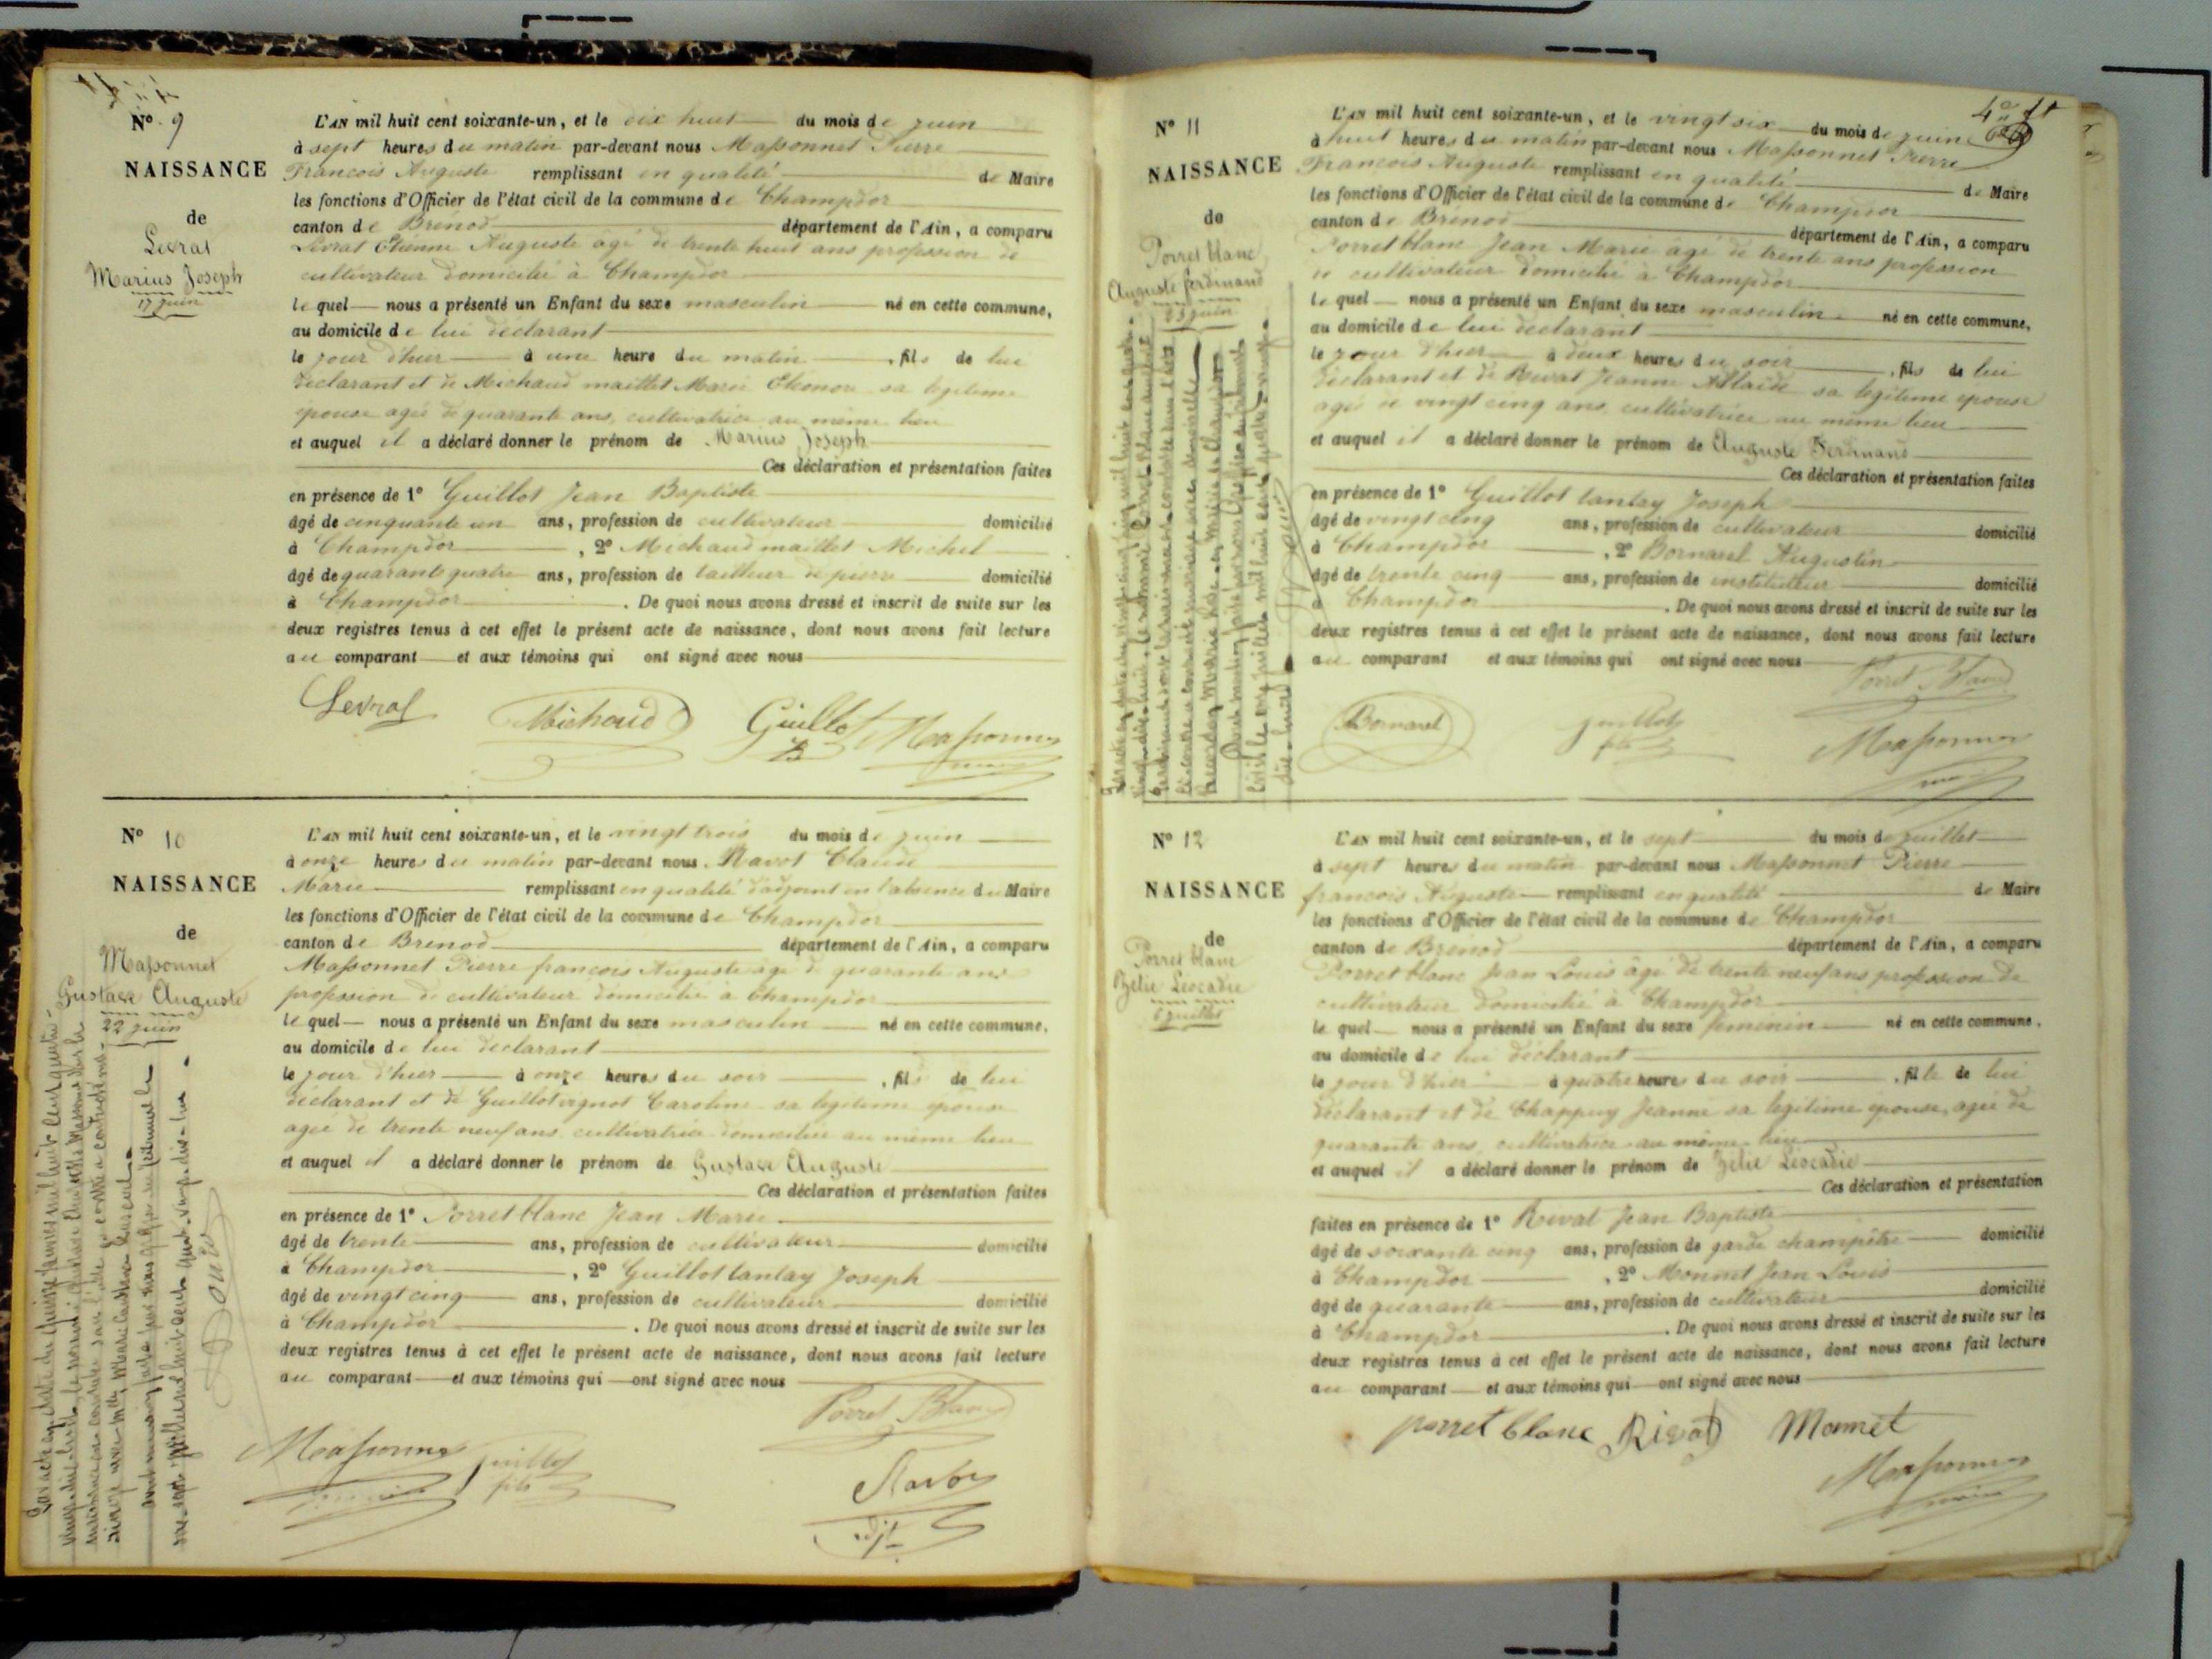 Nº 9
NAISSANCE
de
Levrat
Marius Joseph
17 juin
L'AN mil huit cent soixante-un, et le dix huit du mois de juin
à sept heures du matin par-devant nous Massonnet Pierre
François Auguste remplissant en qualité de Maire
les fonctions d'Officier de l'état civil de la commune de Champdor
canton de Brénod département de l'Ain, a comparu
Levrat Etienne Auguste âgé de trente huit ans profession de
cultivateur domicilié à Champdor
lequel nous a présenté un Enfant du sexe masculin né en cette commune,
au domicile de lui déclarant
le jour d'hier à une heure du matin, fils de lui
déclarant et de Michaud maillet Marie Eléonore sa légitime
épouse agée de quarante ans, cultivatrice au même lieu
et auquel il a déclaré donner le prénom de Marius Joseph
Ces déclaration et présentation faites
en présence de 1º Guillot Jean Baptiste
âgé de cinquante un ans, profession de cultivateur domicilié
à Champdor, 2º Michaud maillet Michel
âgé de quarante quatre ans, profession de tailleur de pierre domicilié
à Champdor. De quoi nous avons dressé et inscrit de suite sur les
deux registres tenus à cet effet le présent acte de naissance, dont nous avons fait lecture
au comparant et aux témoins qui ont signé avec nous
Levrat Michaud Guillot Massonnet
Nº 10
NAISSANCE
de
Massonnet
Gustave Auguste
22 juin
L'AN mil huit cent soixante-un, et le vingt trois du mois de juin
à onze heures du matin par-devant nous Ravot Claude
Marie remplissant en qualité d'adjoint en l'absence du Maire
les fonctions d'Officier de l'état civil de la commune de Champdor
canton de Brénod département de l'Ain, a comparu
Massonnet Pierre françois Auguste âgé de quarante ans
profession de cultivateur domicilié à Champdor
lequel nous a présenté un Enfant du sexe masculin né en cette commune,
au domicile de lui déclarant
le jour d'hier à onze heures du soir, fils de lui
déclarant et de Guillot vignot Caroline sa légitime épouse
agée de trente neuf ans cultivatrice domiciliée au même lieu
et auquel il a déclaré donner le prénom de Gustave Auguste
Ces déclaration et présentation faites
en présence de 1º Porret blanc Jean Marie
âgé de trente ans, profession de cultivateur domicilié
à Champdor, 2º Guillot lantay Joseph
âgé de vingt cinq ans, profession de cultivateur domicilié
à Champdor. De quoi nous avons dressé et inscrit de suite sur les
deux registres tenus à cet effet le présent acte de naissance, dont nous avons fait lecture
au comparant et aux témoins qui ont signé avec nous
Porret Blanc
Massonnet Guillot fils Ravot
adjt
Nº 11
NAISSANCE
de
Porret blanc
Auguste ferdinand
25 juin
L'AN mil huit cent soixante-un, et le vingt six du mois de juin
à huit heures du matin par-devant nous Massonnet Pierre
François Auguste remplissant en qualité de Maire
les fonctions d'Officier de l'état civil de la commune de Champdor
canton de Brénod département de l'Ain, a comparu
Porret blanc Jean Marie âgé de trente ans profession
de cultivateur domicilié à Champdor
lequel nous a présenté un Enfant du sexe masculin né en cette commune,
au domicile de lui déclarant
le jour d'hier à deux heures du soir, fils de lui
déclarant et de Rivat Jeanne sa légitime épouse
agée de vingt cinq ans, cultivatrice au même lieu
et auquel il a déclaré donner le prénom de Auguste Ferdinand
Ces déclaration et présentation faites
en présence de 1º Guillot lantay Joseph
âgé de vingt cinq ans, profession de cultivateur domicilié
à Champdor, 2º Bornarel Augustin
âgé de trente cinq ans, profession de instituteur domicilié
à Champdor. De quoi nous avons dressé et inscrit de suite sur les
deux registres tenus à cet effet le présent acte de naissance, dont nous avons fait lecture
au comparant et aux témoins qui ont signé avec nous
Porret Blanc
Bornarel Guillot fils Massonnet
Nº 12
NAISSANCE
de
Porret blanc
Zélie Léocadie
6 juillet
L'AN mil huit cent soixante-un, et le sept du mois de juillet
à sept heures du matin par-devant nous Massonnet Pierre
françois Auguste remplissant en qualité de Maire
les fonctions d'Officier de l'état civil de la commune de Champdor
canton de Brénod département de l'Ain, a comparu
Porret blanc Jean Louis âgé de trente neuf ans profession de
cultivateur domicilié à Champdor
lequel nous a présenté un Enfant du sexe féminin né en cette commune,
au domicile de lui déclarant
le jour d'hier à quatre heures du soir, fille de lui
déclarant et de Chappuy Jeanne sa légitime épouse, agée de
quarante ans, cultivatrice au même lieu
et auquel il a déclaré donner le prénom de Zélie Léocadie
Ces déclaration et présentation
faites en présence de 1º Rivat Jean Baptiste
âgé de soixante cinq ans, profession de garde champêtre domicilié
à Champdor, 2º Monnet Jean Louis
âgé de quarante ans, profession de cultivateur domicilié
à Champdor. De quoi nous avons dressé et inscrit de suite sur les
deux registres tenus à cet effet le présent acte de naissance, dont nous avons fait lecture
au comparant et aux témoins qui ont signé avec nous
porret blanc Rivat Monnet
Massonnet
maire